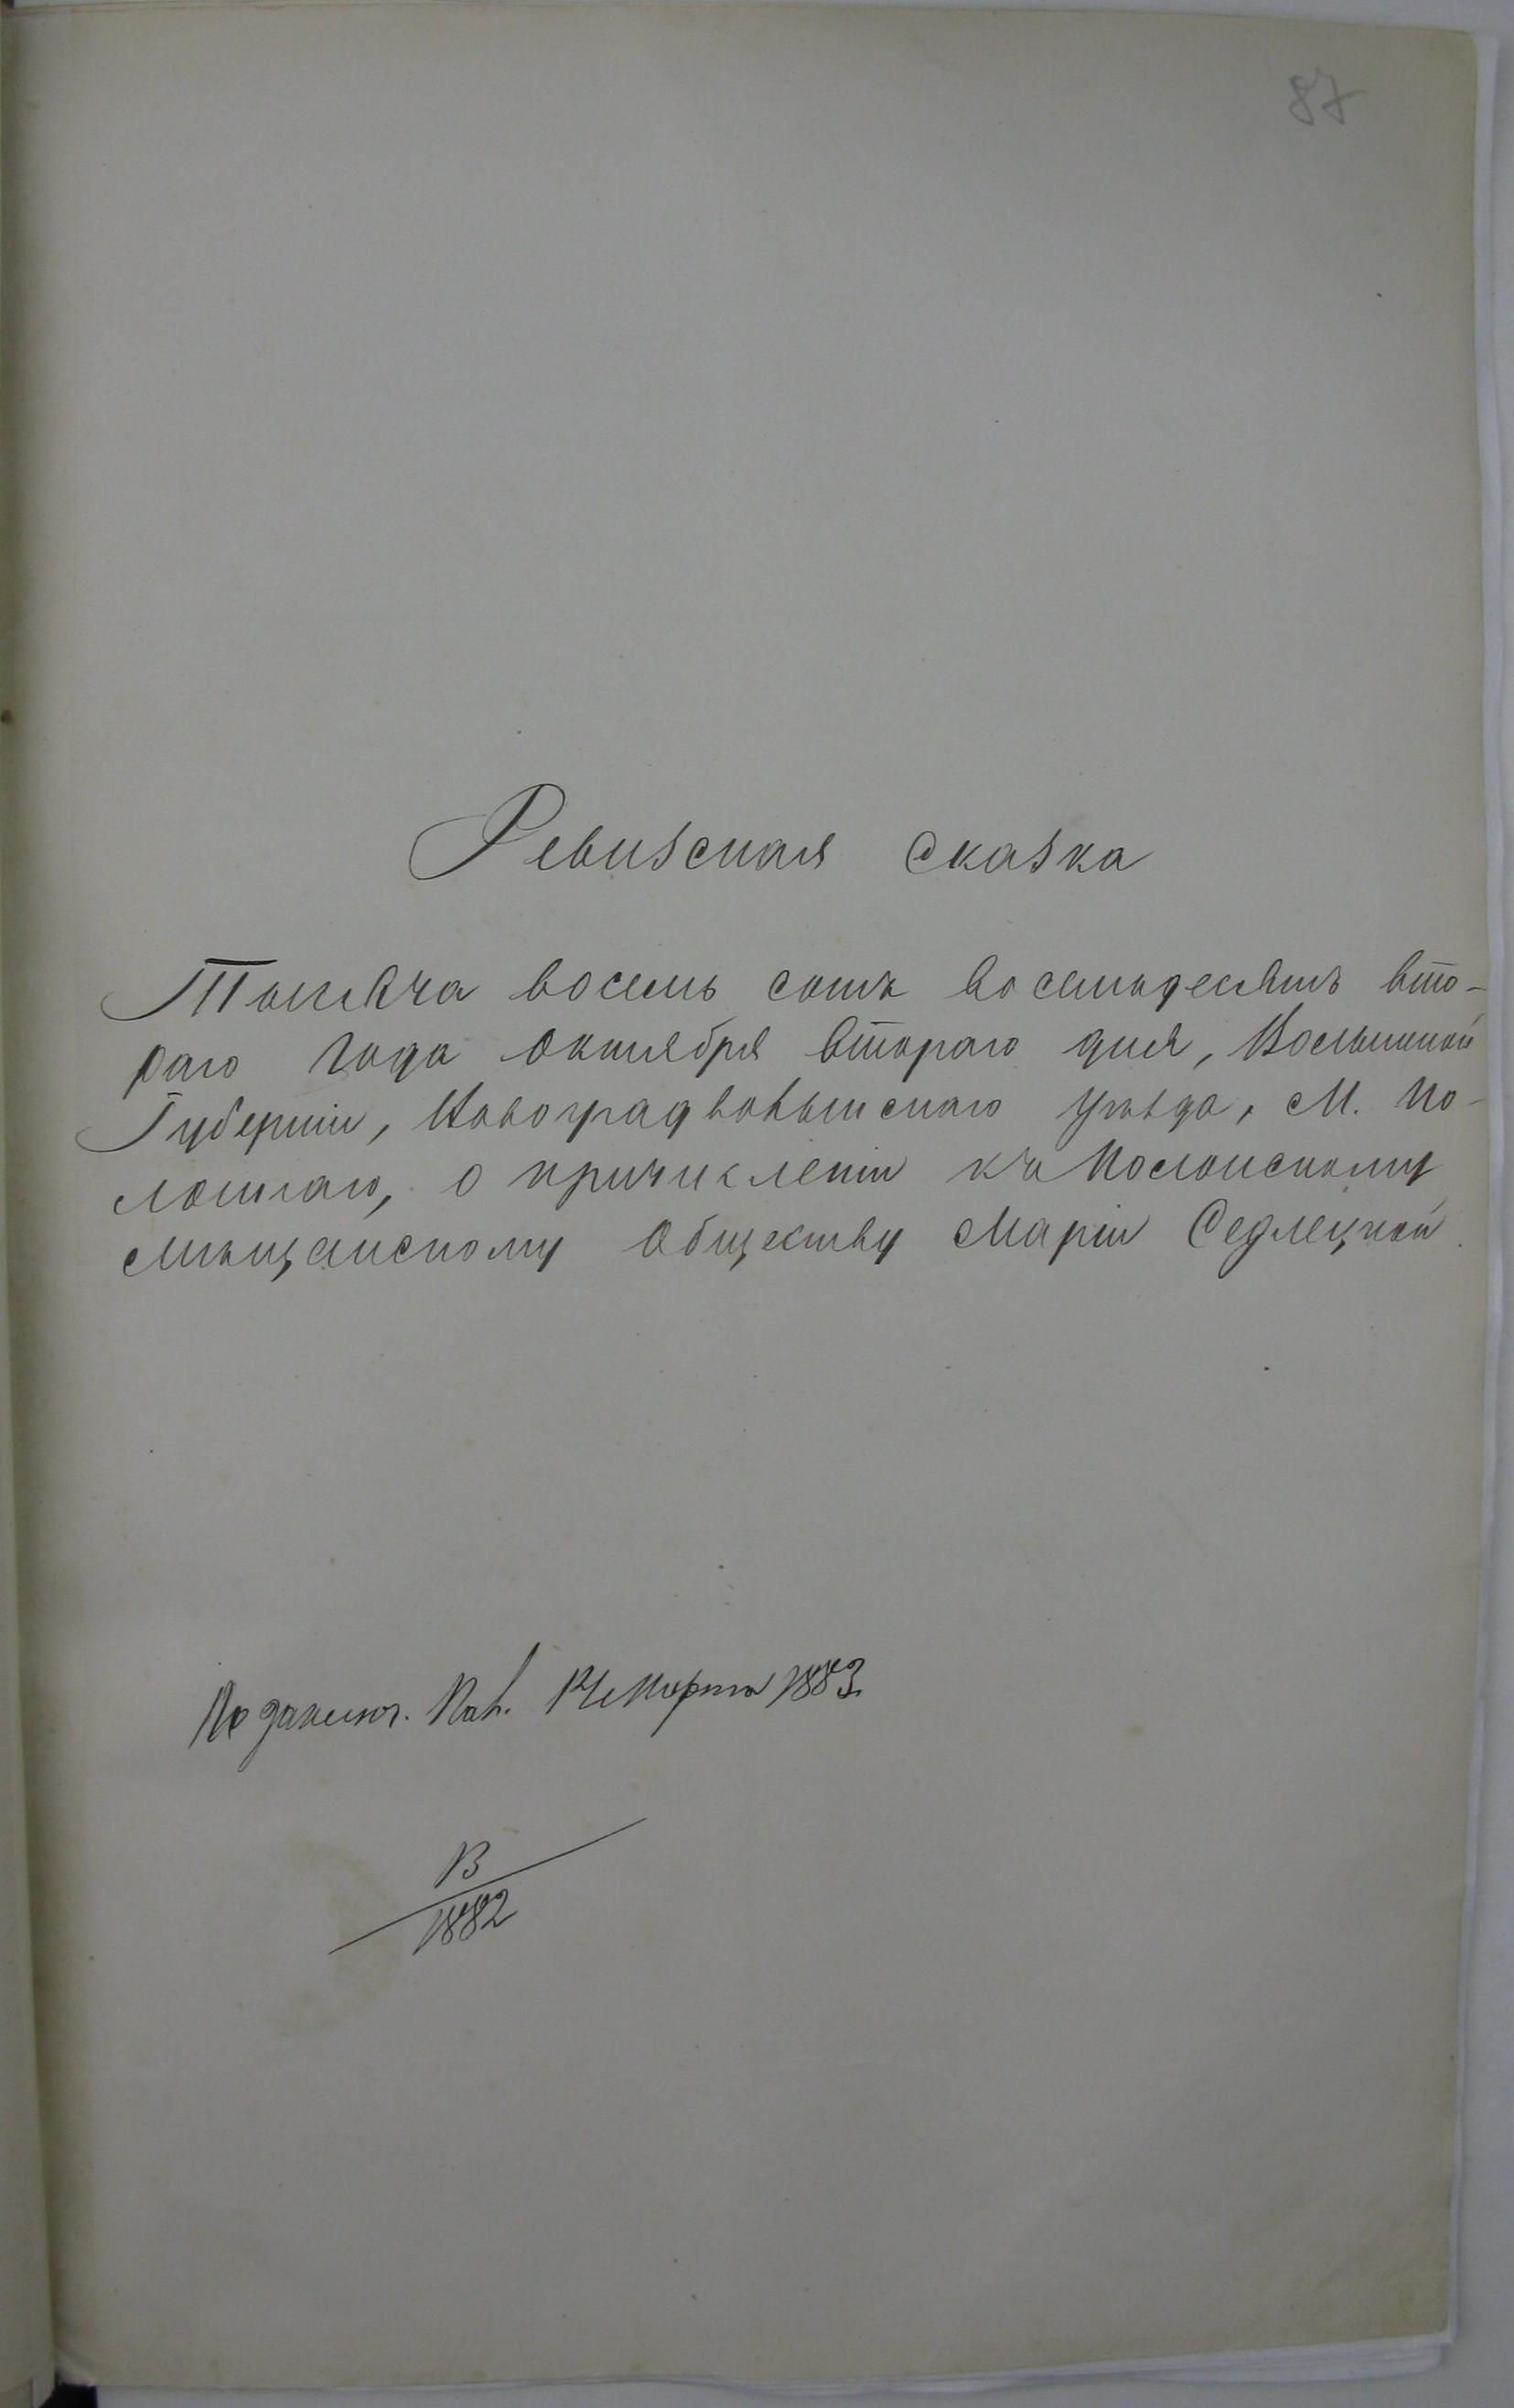 87
Ревизская сказка
Тысяча восемь сотъ восемьдесятъ вто-
раго года Октября втораго дня, Волынской
Губерніи, Новоградволынскаго уѣзда, М. По-
лоннаго, о причисленіи къ Полонскому
мѣщанскому Обществу Маріи Седлецкой.
По заключ. Пал. 14 Марта 1883
В
1882